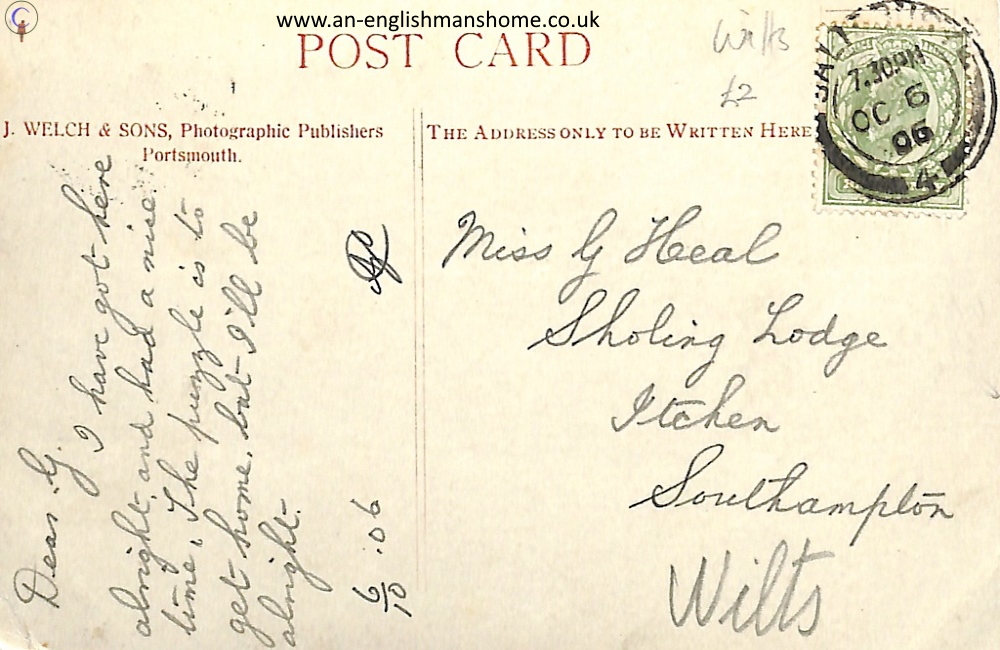 www.an-englishmanshome.co.uk
POST CARD
Wilts
£2
J. WELCH & SONS, Photographic Publishers
Portsmouth.
THE ADDRESS ONLY TO BE WRITTEN HERE
7.30PM
OC 6
06
4
Dear G. I have got here
alright, and had a nice
time, The puzzle is to
get home, but I'll be
alright.
6/10.06
Miss G Heal
Sholing Lodge
Itchen
Southampton
Wilts